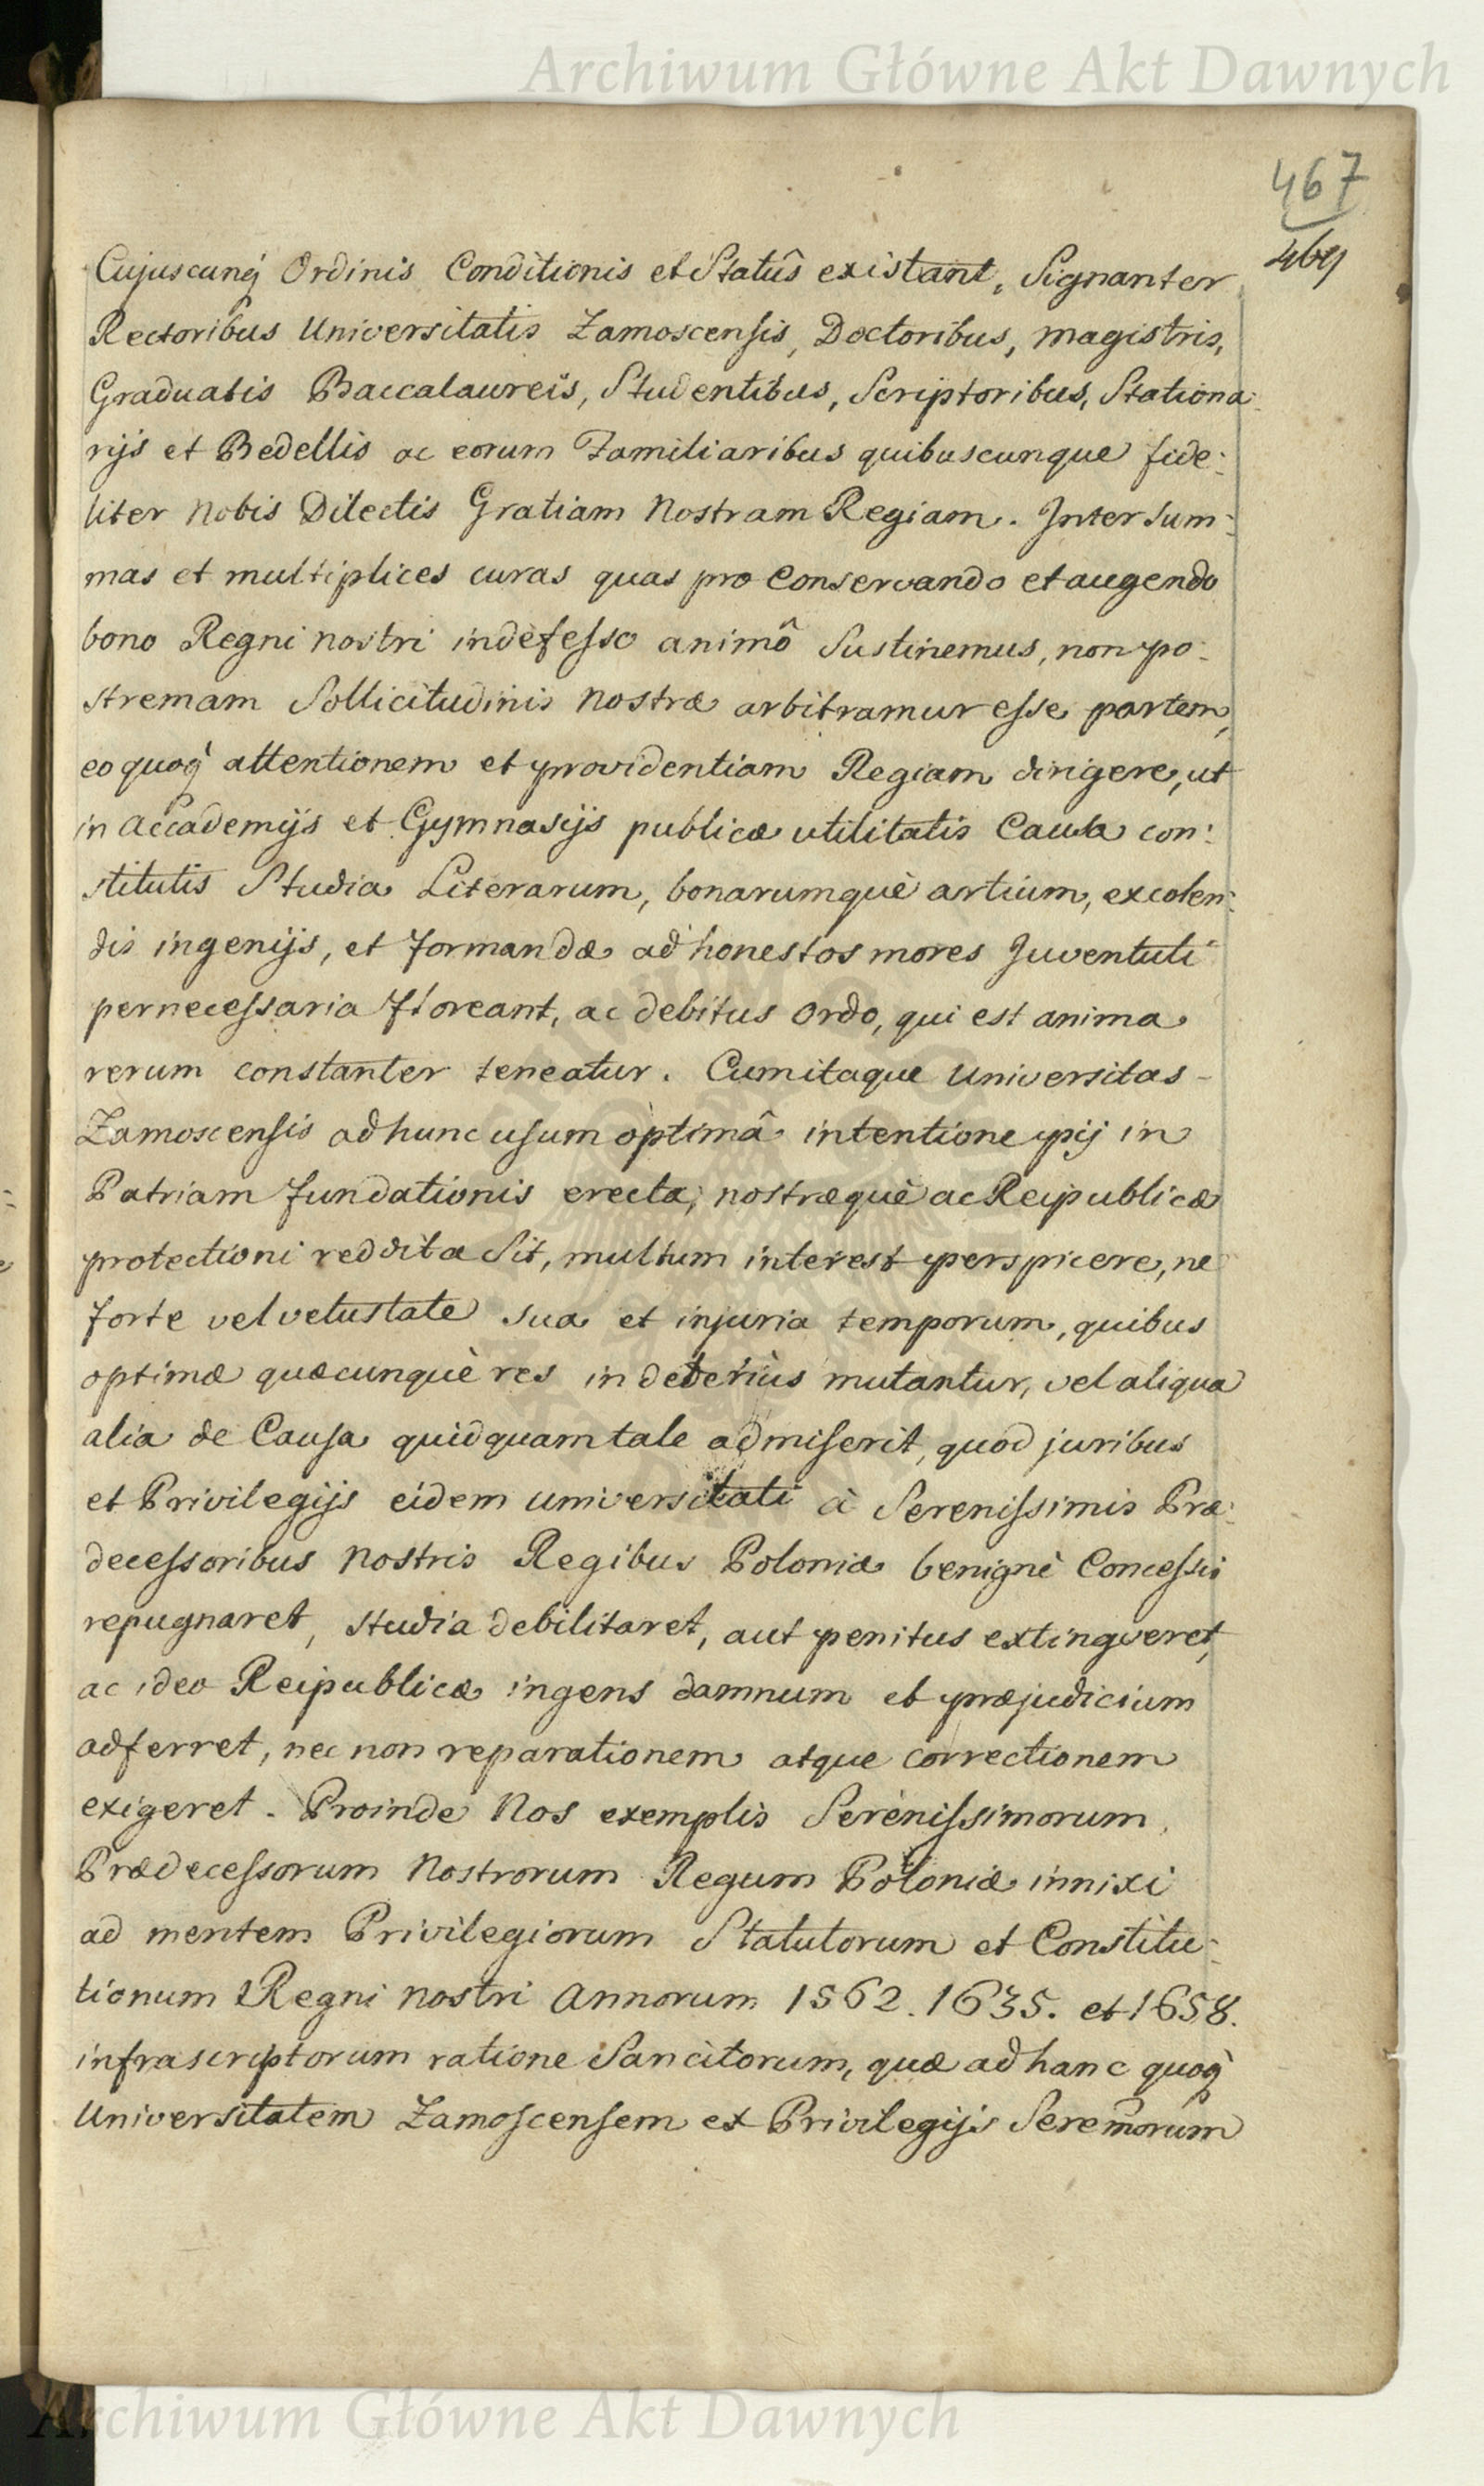 Archiwum Główne Akt Dawnych
467
469
Cujuscunq́ Ordinis Conditionis et Statûs existant, Signanter
Rectoribus Universitatis Zamoscensis, Doctoribus, Magistris,
Graduatis Baccalaureis, Studentibus, Scriptoribus, Stationa:
rijs et Bedellis ac eorum Familiaribus quibuscunque fide:
liter Nobis Dilectis Gratiam Nostram Regiam. Inter Sum:
mas et multiplices curas quas pro Conservando et augendo
bono Regni nostri indefesso animô Sustinemus, non po:
stremam Sollicitudinis Nostræ arbitramur esse partem,
eo quoq̀ attentionem et providentiam Regiam dirigere, ut
in Accademijs et Gymnasijs publicæ utilitatis Causa con:
stitutis Studia Literarum, bonarumquè artium, excolen:
dis ingenijs, et formandæ ad honestos mores Juventuti
pernecessaria floreant, ac debitus Ordo, qui est anima
rerum constanter teneatur. Cum itaque Universitas -
Zamoscensis ad hunc usum optimâ intentione pij in
Patriam fundationis erecta, nostræquè ac Reipublicæ
protectioni reddita Sit, multum interest perspicere, ne
forte vel vetustate sua et injuria temporum, quibus
optimæ quæcunquè res in deteriùs mutantur, vel aliqua
alia de Causa quidquam tale admiserit, quod juribus
et Privilegijs eidem Universitati à Serenissimis Præ:
decessoribus Nostris Regibus Poloniæ benignè Concessis
repugnaret, studia debilitaret, aut penitus extingveret,
ac ideo Reipublicæ ingens damnum et præjudicium
adferret, nec non reparationem atque correctionem
exigeret. Proinde Nos exemplis Serenissimorum
Prædecessorum Nostrorum Regum Poloniæ innixi
ad mentem Privilegiorum Statutorum et Constitu:
tionum Regni nostri Annorum 1562. 1635. et 1658.
infrascriptorum ratione Sancitorum, quæ ad hanc quoq̀
Universitatem Zamoscensem ex Privilegijs Seremorum
Archiwum Główne Akt Dawnych